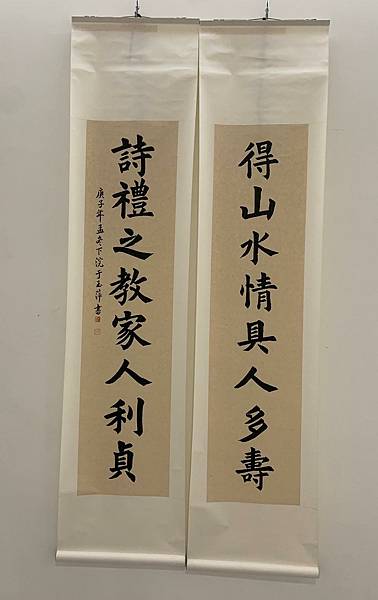 得山水情具人多壽
詩禮之教家人利貞
庚子年孟冬下浣于玉萍書